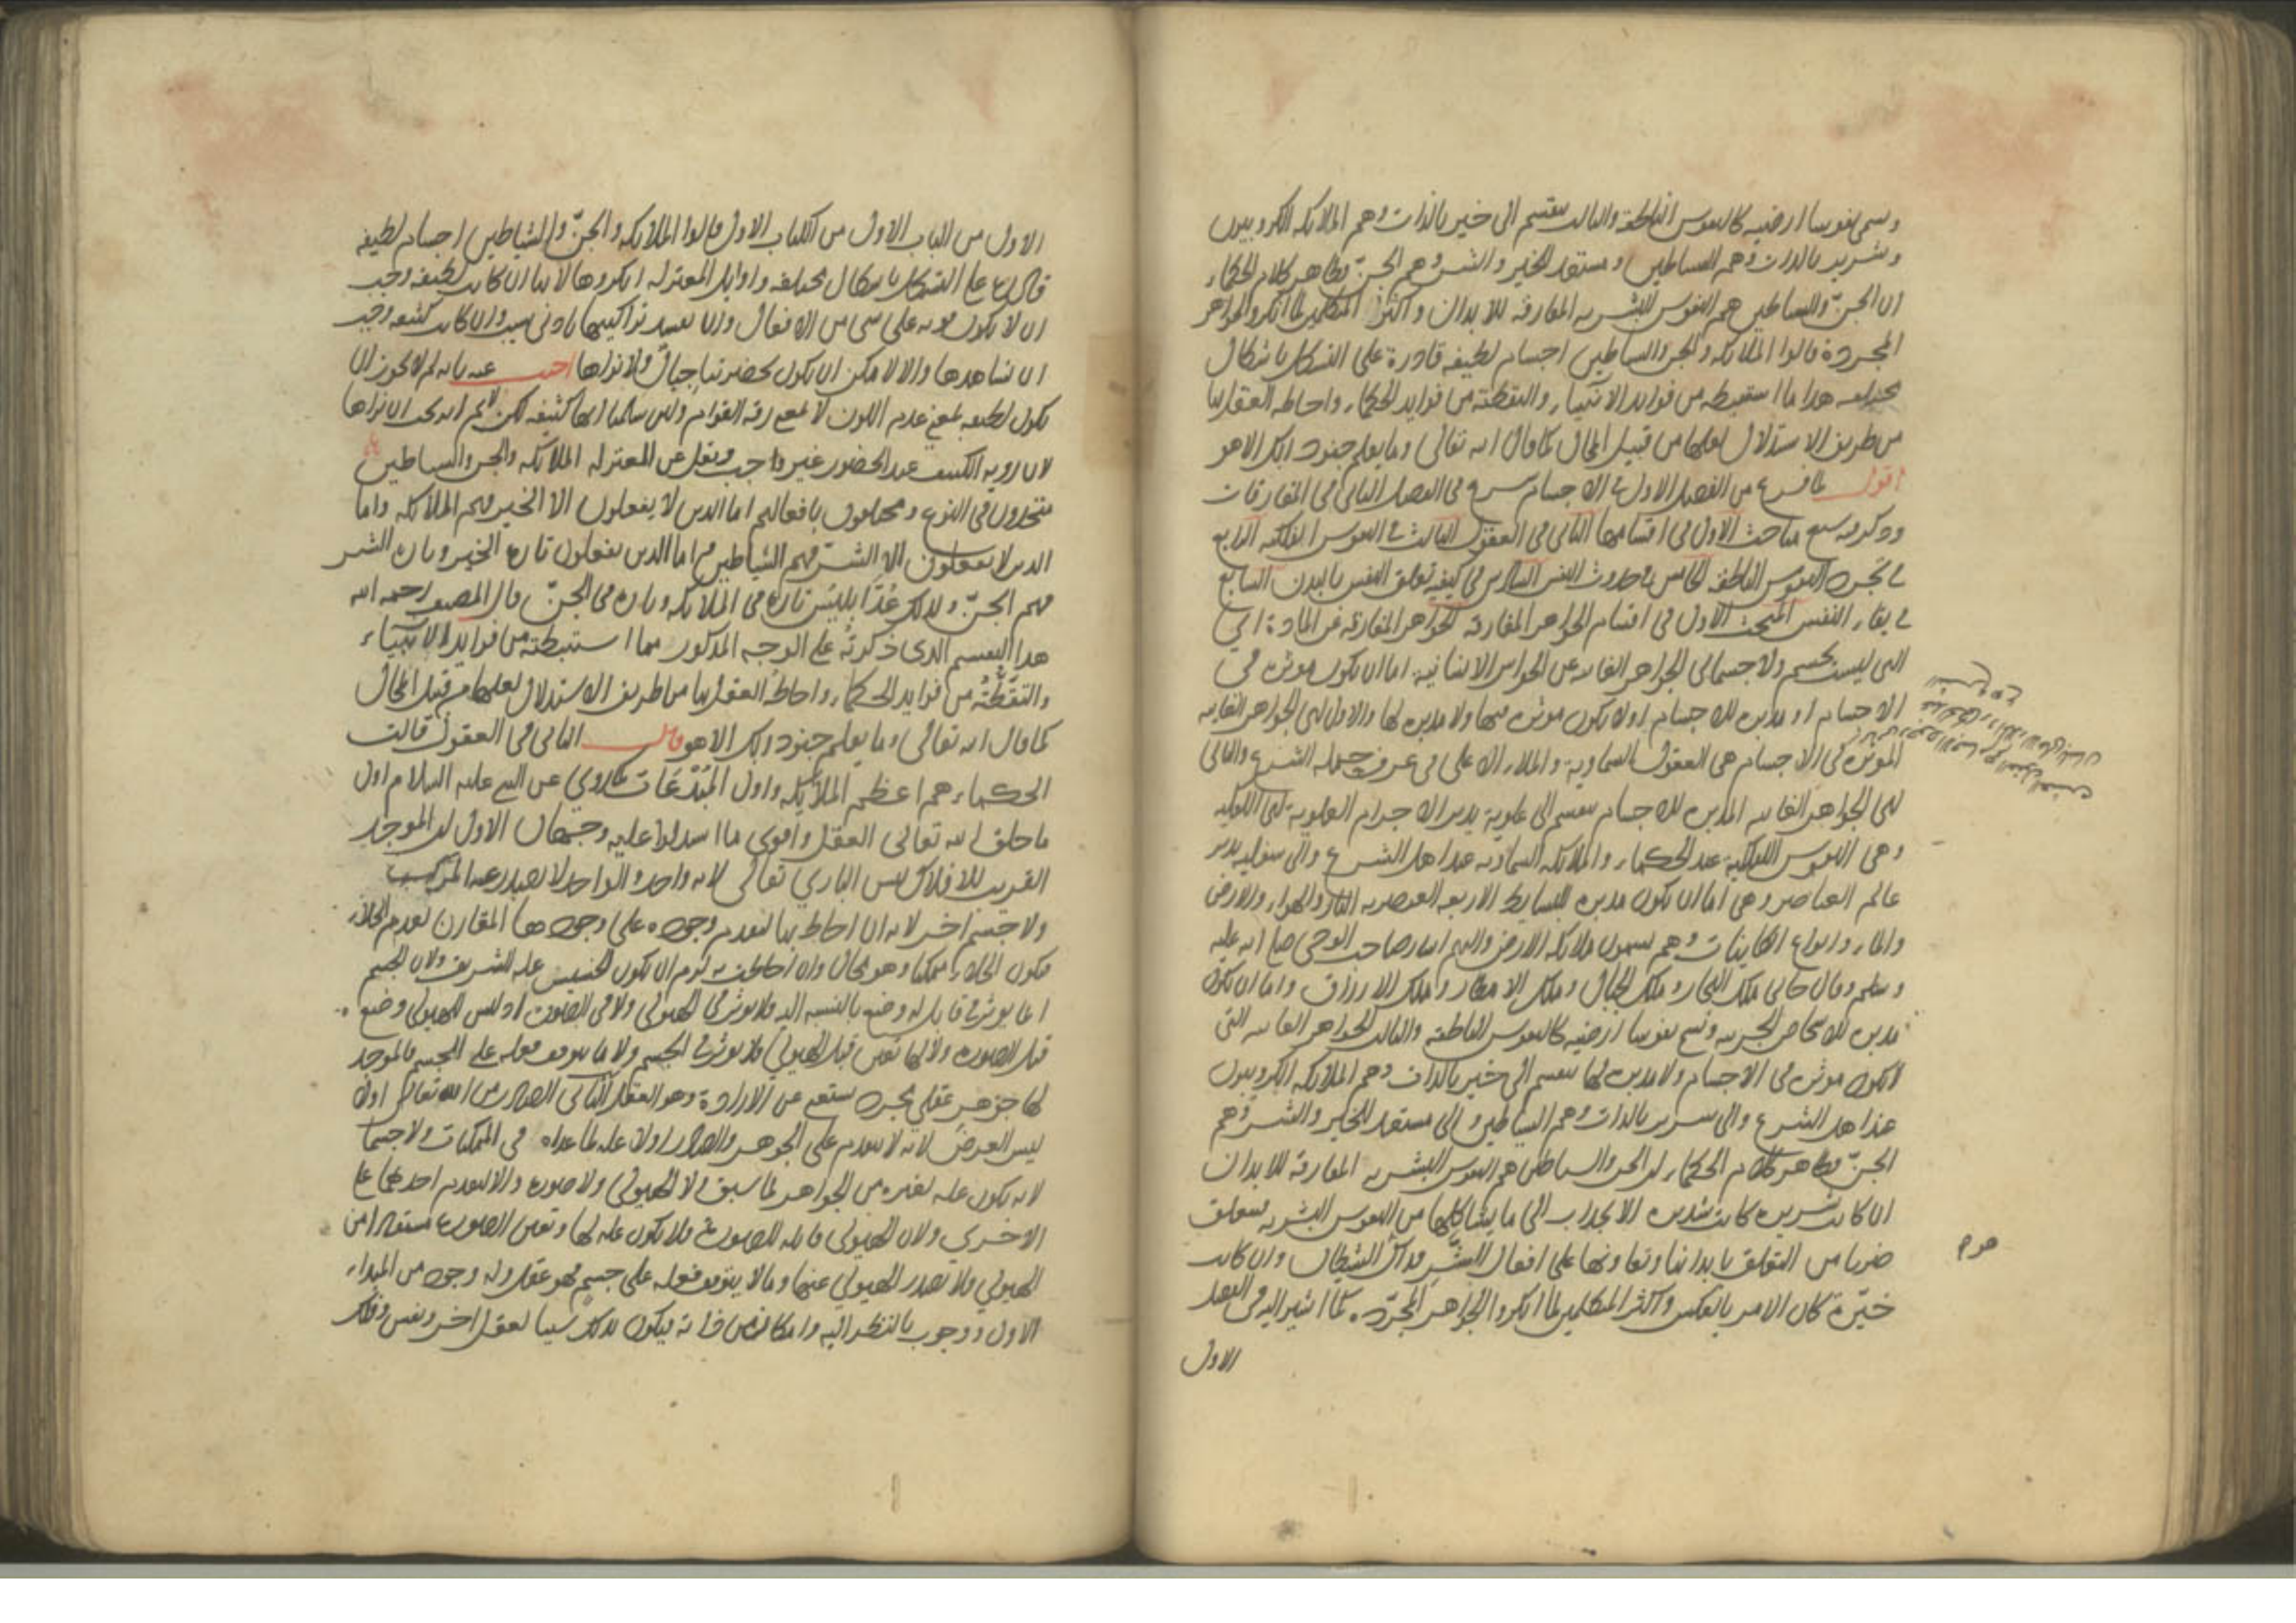 وسمى نفوسا ارضيه كالنفوس الناطقة والثالث ينقسم الى خير بالذات وهم الملائكه الكروبيون
وشرير بالذات وهم الشياطين ومستعد للخير والشر وهم الجنّ وظاهر كلام الحكماء
ان الجنّ والشياطين هم النفوس البشريه المفارقه للابدان واكثر المتكلمين لما انكروا الجواهر
المجردة قالوا الملائكه والجن والشياطين اجسام لطيفه قادرة على التشكل باشكال
مختلفه هذا ما استنبطته من فوايد الانبياء والتقطته من فوايد الحكماء واحاطه العقل بها
من طريق الاستدلال لعلها من قبيل المحال كما قال الله تعالى وما يعلم جنود ربك الا هو
اقول لما فرغ من الفصل الاول في الاجسام شرع في الفصل الثاني في المفارقات
وذكر فيه سبع مباحث الاول في اقسامها الثاني في العقول الثالث في النفوس الفلكيه الرابع
في تجرد النفوس الناطقه الخامس في حدوث النفس السادس في كيفيه تعلق النفس بالبدن السابع
في بقاء النفس المبحث الاول في اقسام الجواهر المفارقه الجواهر المفارقه عن المادة اي
التي ليست بجسم ولا جسماني الجواهر الغائبه عن الحواس الانسانية اما ان يكون موثره في
الاجسام او مدبره للاجسام اولا يكون موثره فيها ولا مدبره لها والاول اي الجواهر الغائبه
الموثره في الاجسام هي العقول السماوية والملاء الاعلى في عرف حمله الشرع والثاني
اي الجواهر الغائبه المدبره للاجسام ينقسم الى علوية يدبر الاجرام العلوية اي الفلكيه
وهي النفوس الفلكية عند الحكماء والملائكه السماويه عند اهل الشرع والى سفليه يدبر
عالم العناصر وهي اما ان يكون مدبره للبسايط الاربعه العنصريه النار والهواء والارض
والماء وانواع الكاينات وهم يسمون ملائكه الارض واليهم اشار صاحب الوحي صلى الله عليه
وسلم وقال جاني ملك البحار وملك الجبال وملك الامطار وملك الارزاق واما ان يكون
مدبره للاشخاص الجزييه ويسمى نفوسا ارضيه كالنفوس الناطقه والثالث الجواهر الغائبه التي
لا يكون موثره في الاجسام ولا مدبره لها ينقسم الى خير بالذات وهم الملائكه الكروبيون
عند اهل الشرع والى شرير بالذات وهم الشياطين والى مستعد للخير والشر وهم
الجنّ وظاهر كلام الحكماء ان الجن والشياطين هم النفوس البشريه المفارقه للابدان
ان كانت شريره كانت شديده الانجذاب الى ما يشاكلها من النفوس البشريه يتعلق
ضربا من التعلق بابدانها وتعاونها على افعال الشّر فذاك الشيطان وان كانت
خيّرة كان الامر بالعكس واكثر المتكلمين لما انكروا الجواهر المجرّده كما اشير اليه في الفصل
الاول
الاول من الباب الاول من الكتاب الاول قالوا الملائكه والجنّ والشياطين اجسام لطيفه
قادره على التشكل باشكال مختلفه واوايل المعتزله انكروها لانها ان كانت لطيفه وجب
ان لا يكون قويه على شي من الافعال وان يفسد تراكيبها بادنى سبب وان كانت كثيفه وجب
ان نشاهدها والا لامكن ان يكون بحضرتنا جبال ولا نراها اجيب عنه بانه لم لا يجوز ان
يكون لطيفه بمعنى عدم اللون لا بمعنى رقه القوام ولئن سلمنا انها كثيفه لكن لا نم انه يجب ان نراها
لان رويه الكثيف عند الحضور غير واجب ونقل عن المعتزله الملائكه والجن والشياطين
متحدون في النوع ومختلفون بافعالهم اما الذين لا يفعلون الا الخير فهم الملائكه واما
الذين لا يفعلون الا الشر فهم الشياطين واما الذين يفعلون تارة الخير وتاره الشر
فهم الجنّ ولذلك عُدّ ابليس تارة في الملائكه وتاره في الجنّ قال المصنف رحمه الله
هذا التقسيم الذي ذكرته على الوجه المذكور مما استنبطته من فوايد الانبياء
والتقطتُه من فوايد الحكماء واحاطه العقل بها من طريق الاستدلال لعلها من قبيل المحال
كما قال الله تعالى وما يعلم جنود ربك الا هو قال الثاني في العقول قالت
الحكماء هم اعظم الملائكه واول المُبْدَعَات كما روي عن النبي عليه السلام اول
ما خلق الله تعالى العقل واقوى ما استدلوا عليه وجهان الاول ان الموجد
القريب للافلاك ليس الباري تعالى لانه واحد والواحد لا يصدر عنه المركب
ولا جسم اخر لانه ان احاط بها لتقدم وجوده على وجودها المقارن لعدم الخلاء
فيكون الخلاء ممكنا وهو محال وان احاطت به لزم ان يكون الخسيس عله للشريف ولان الجسم
انما يوثر في قابل له وضع بالنسبه اليه فلا يوثر في الهيولى ولا في الصوره اذ ليس للهيولى وضع
قبل الصوره ولا لها تعين قبل الهيولى فلا يوثر في الجسم ولا ما يتوقف فعله على الجسم فالموجد
لها جوهر عقلي مجرد مستغن عن الارادة وهو العقل الثاني الصادر من الله تعالى اولا
ليس العرض لانه لا يتقدم على الجوهر والصادر اولا عله لما عداه في الممكنات ولا جسما
لانه يكون عله لغيره من الجواهر لما سبق ولا الهيولى ولا صوره والا لتقدم احدهما على
الاخرى ولان الهيولى قابله للصورة فلا يكون عله لها وتعين الصورة مستفاد من
الهيولى فلا تصدر الهيولى عنها وما لا يتوقف فعله على جسم فهو عقل وله وجود من المبداء
الاول ووجوب بالنظر اليه وامكان من ذاته فيكون بذلك سببا لعقل اخر ونفس وفلك